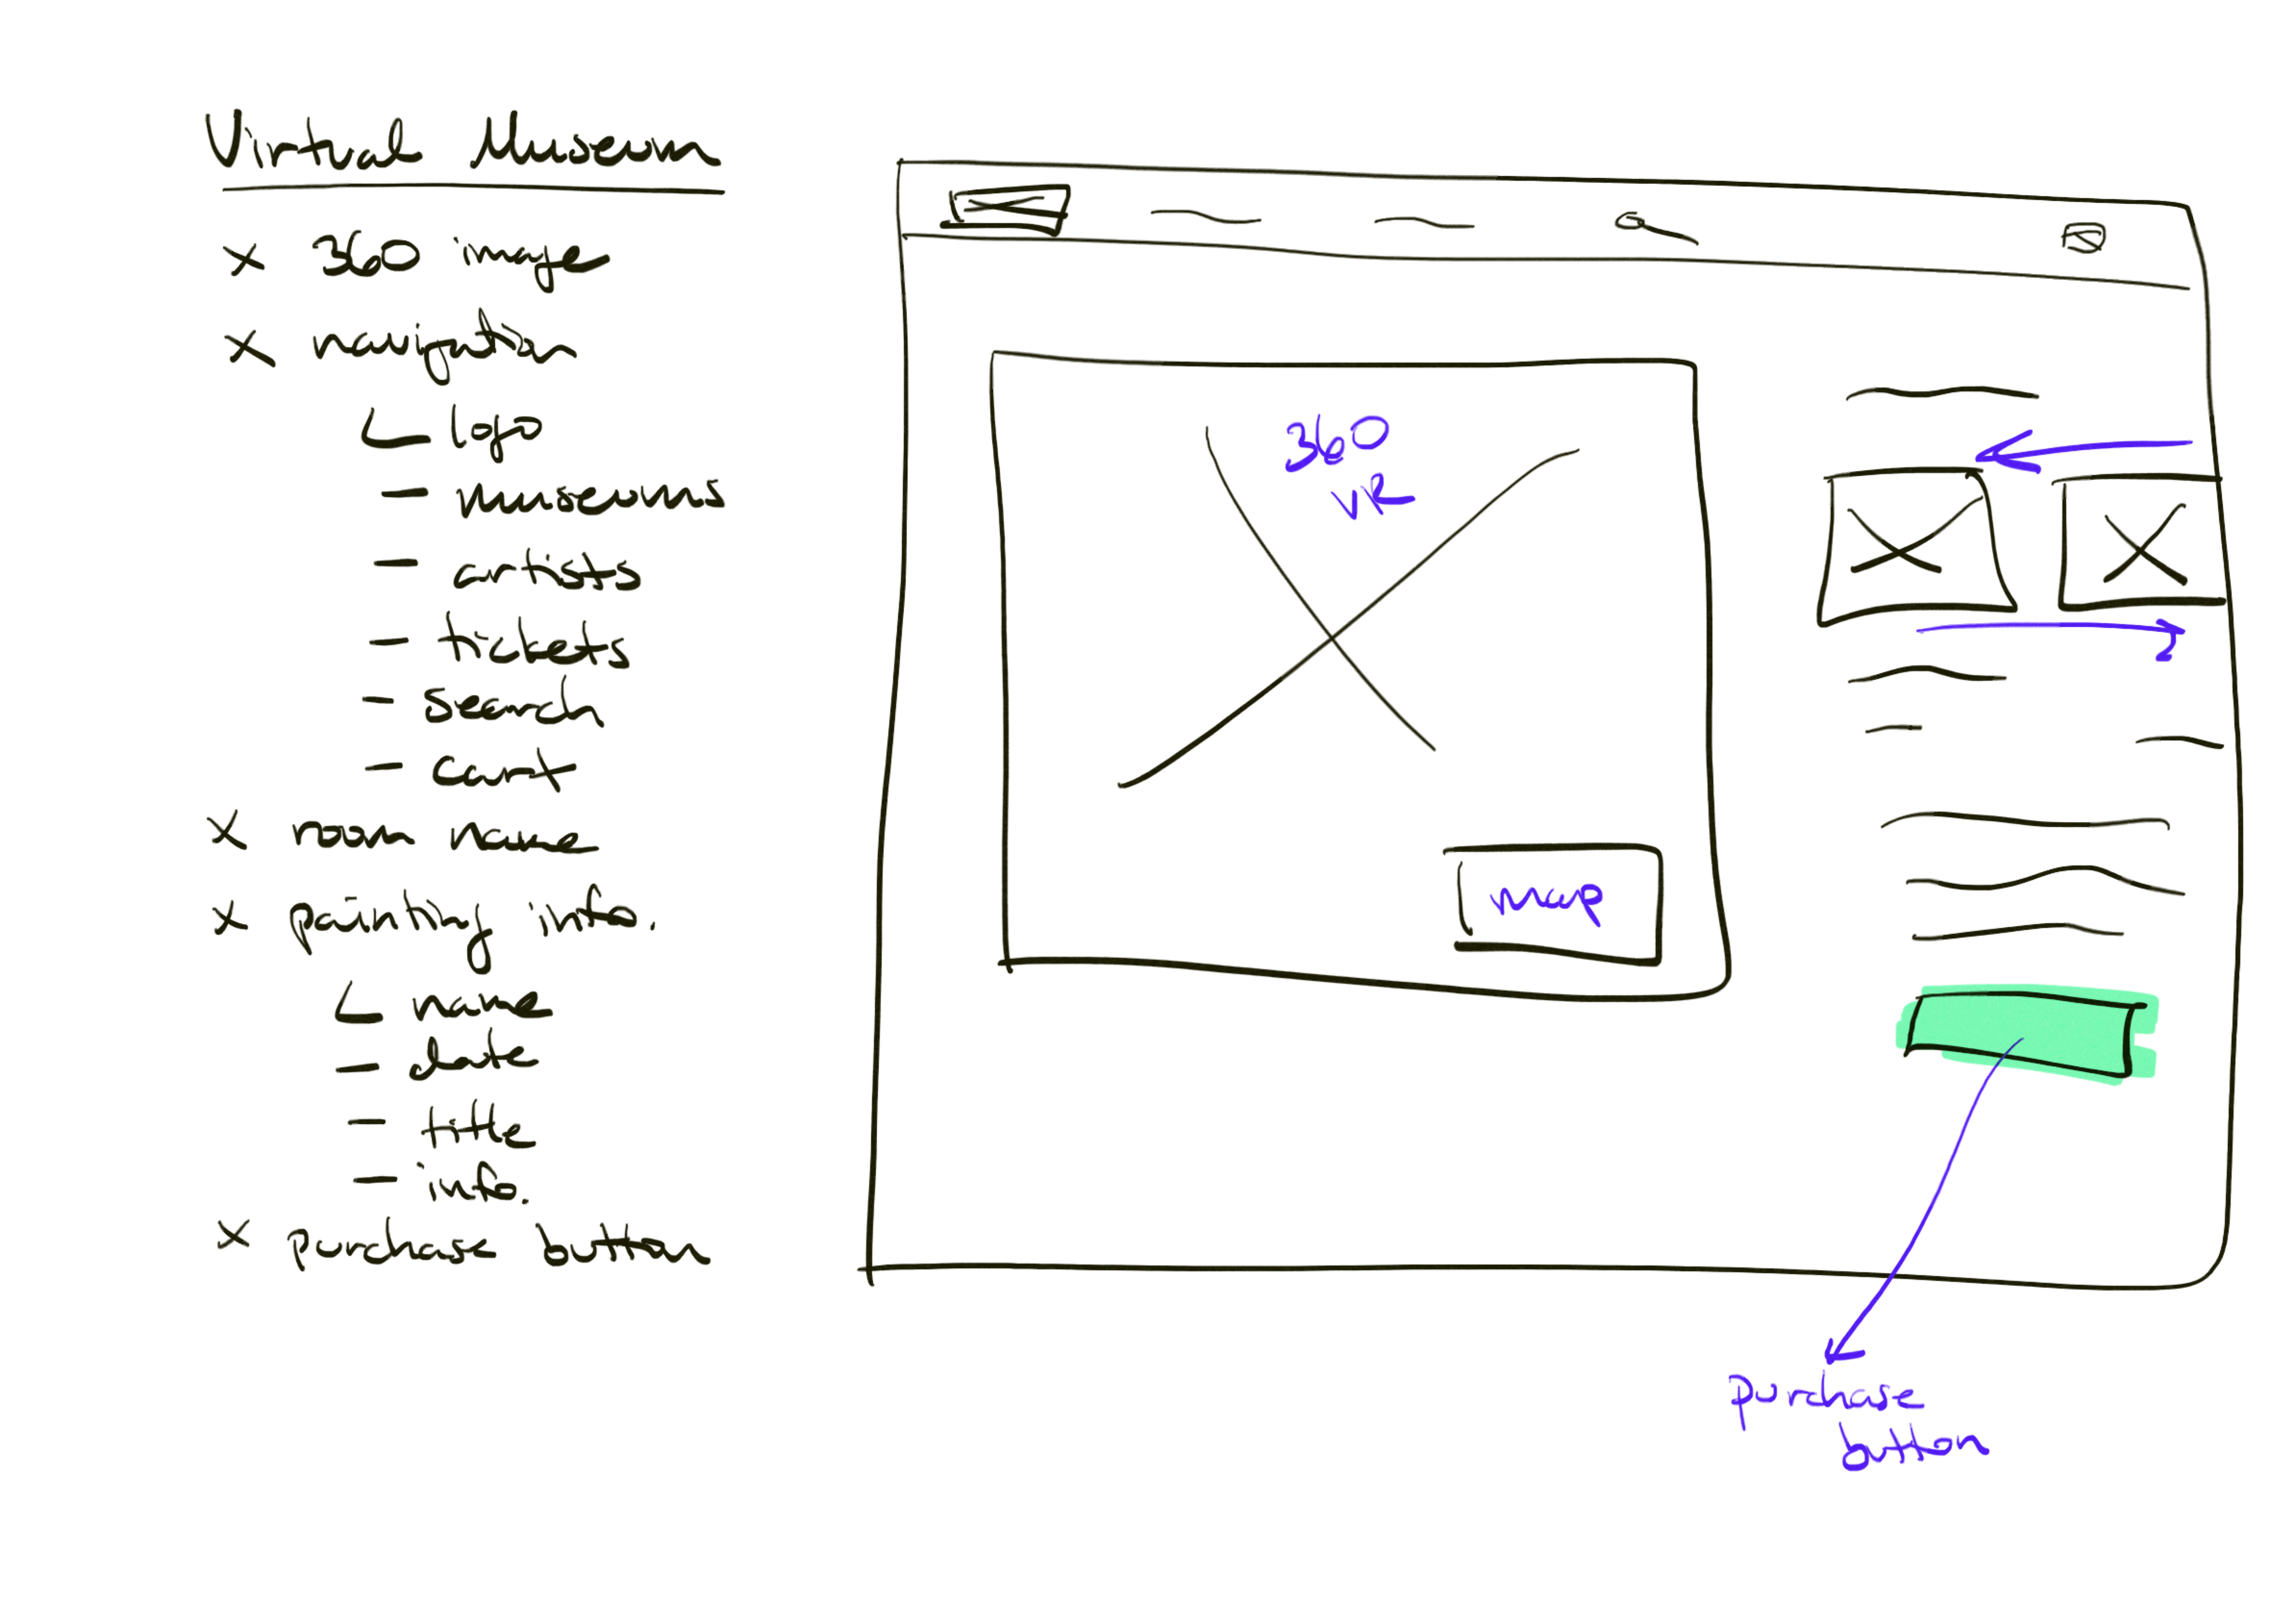 Virtual Museum
x 360 image
x navigation
logo
- museums
- artists
- tickets
- search
- cart
x room name
x painting info.
name
- date
- title
- info.
x purchase button
360
VR
map
purchase
button